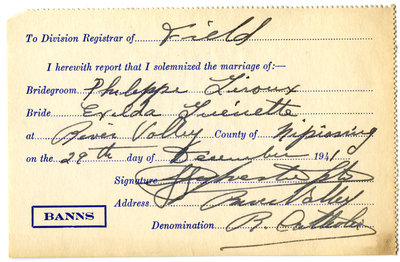 To Division Registrar of Field
I herewith report that I solemnized the marriage of:—
Bridegroom Philippe Giroux
Bride Exilda Guénette
at River Valley County of Nipissing
on the 29th day of December 1941
Signature
Address River Valley
BANNS
Denomination R. Catholic